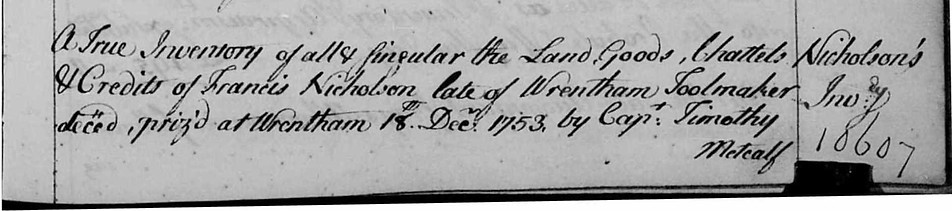 A True Inventory of all & singular the Land, Goods, Chattels
& Credits of Francis Nicholson late of Wrentham Toolmaker
deced, priz'd at Wrentham 18th. Decr. 1753. by Capt. Timothy
Metcalf
Nicholson's
Invry
18607